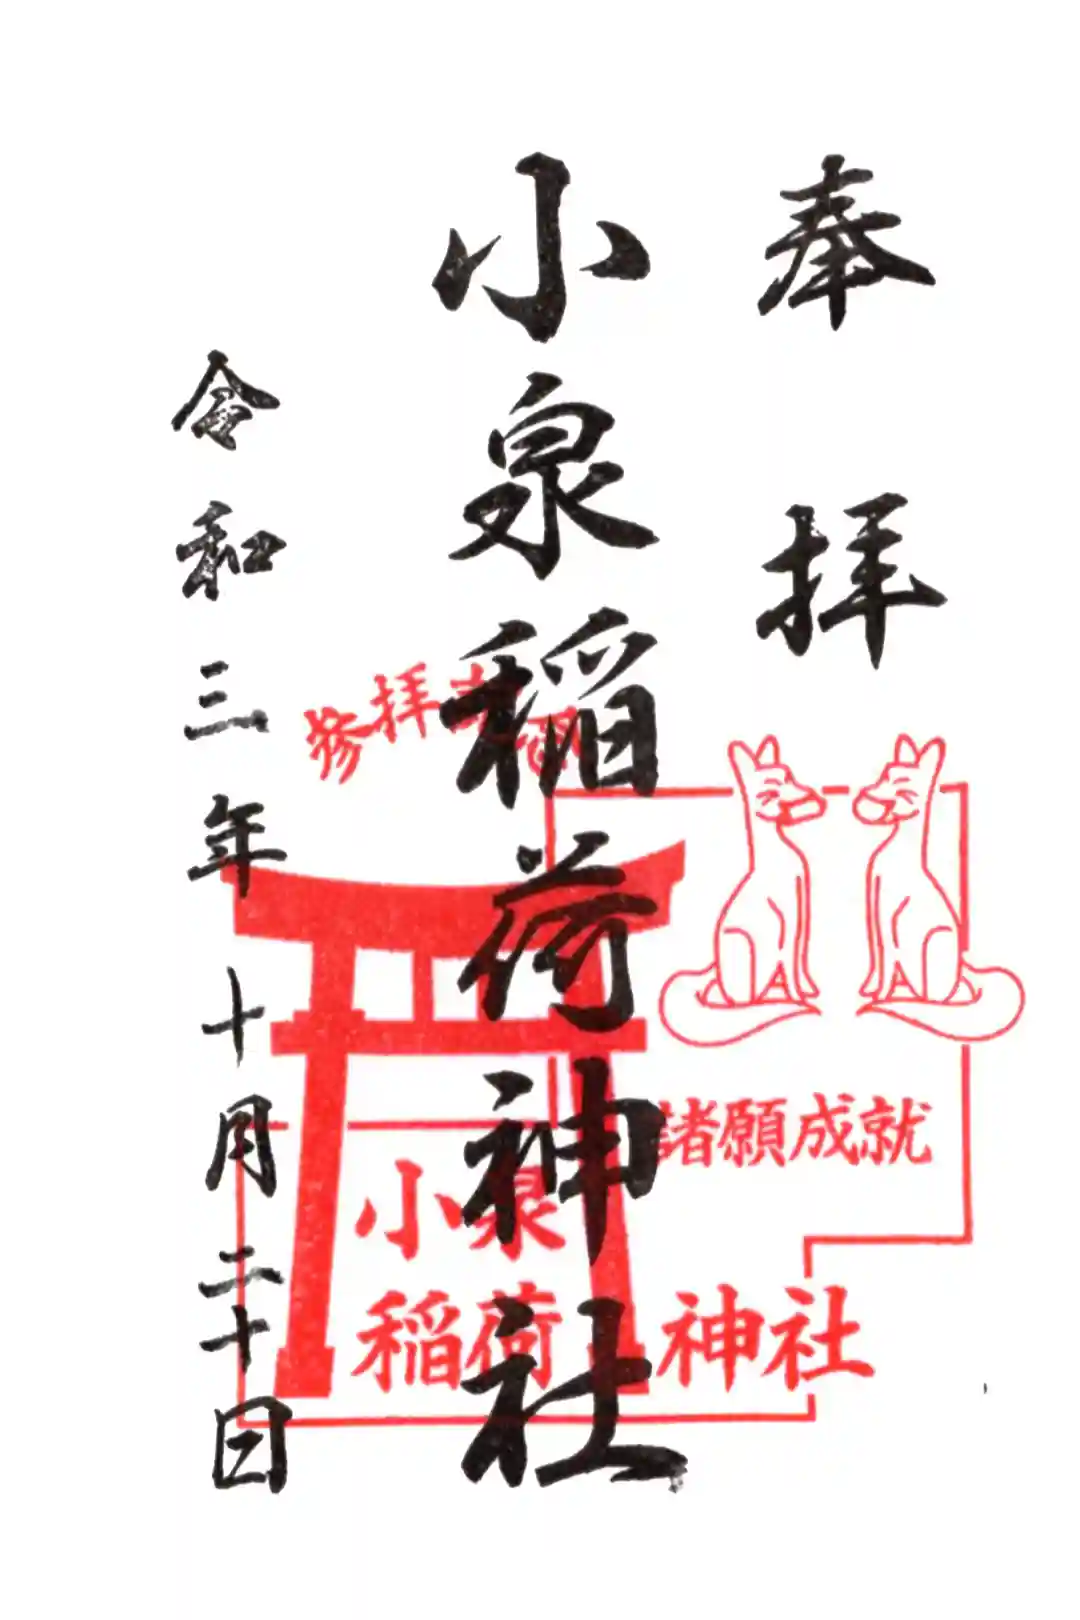 奉拝
小泉稲荷神社
令和三年十月二十日
参拝記念
諸願成就
小泉
稲荷神社